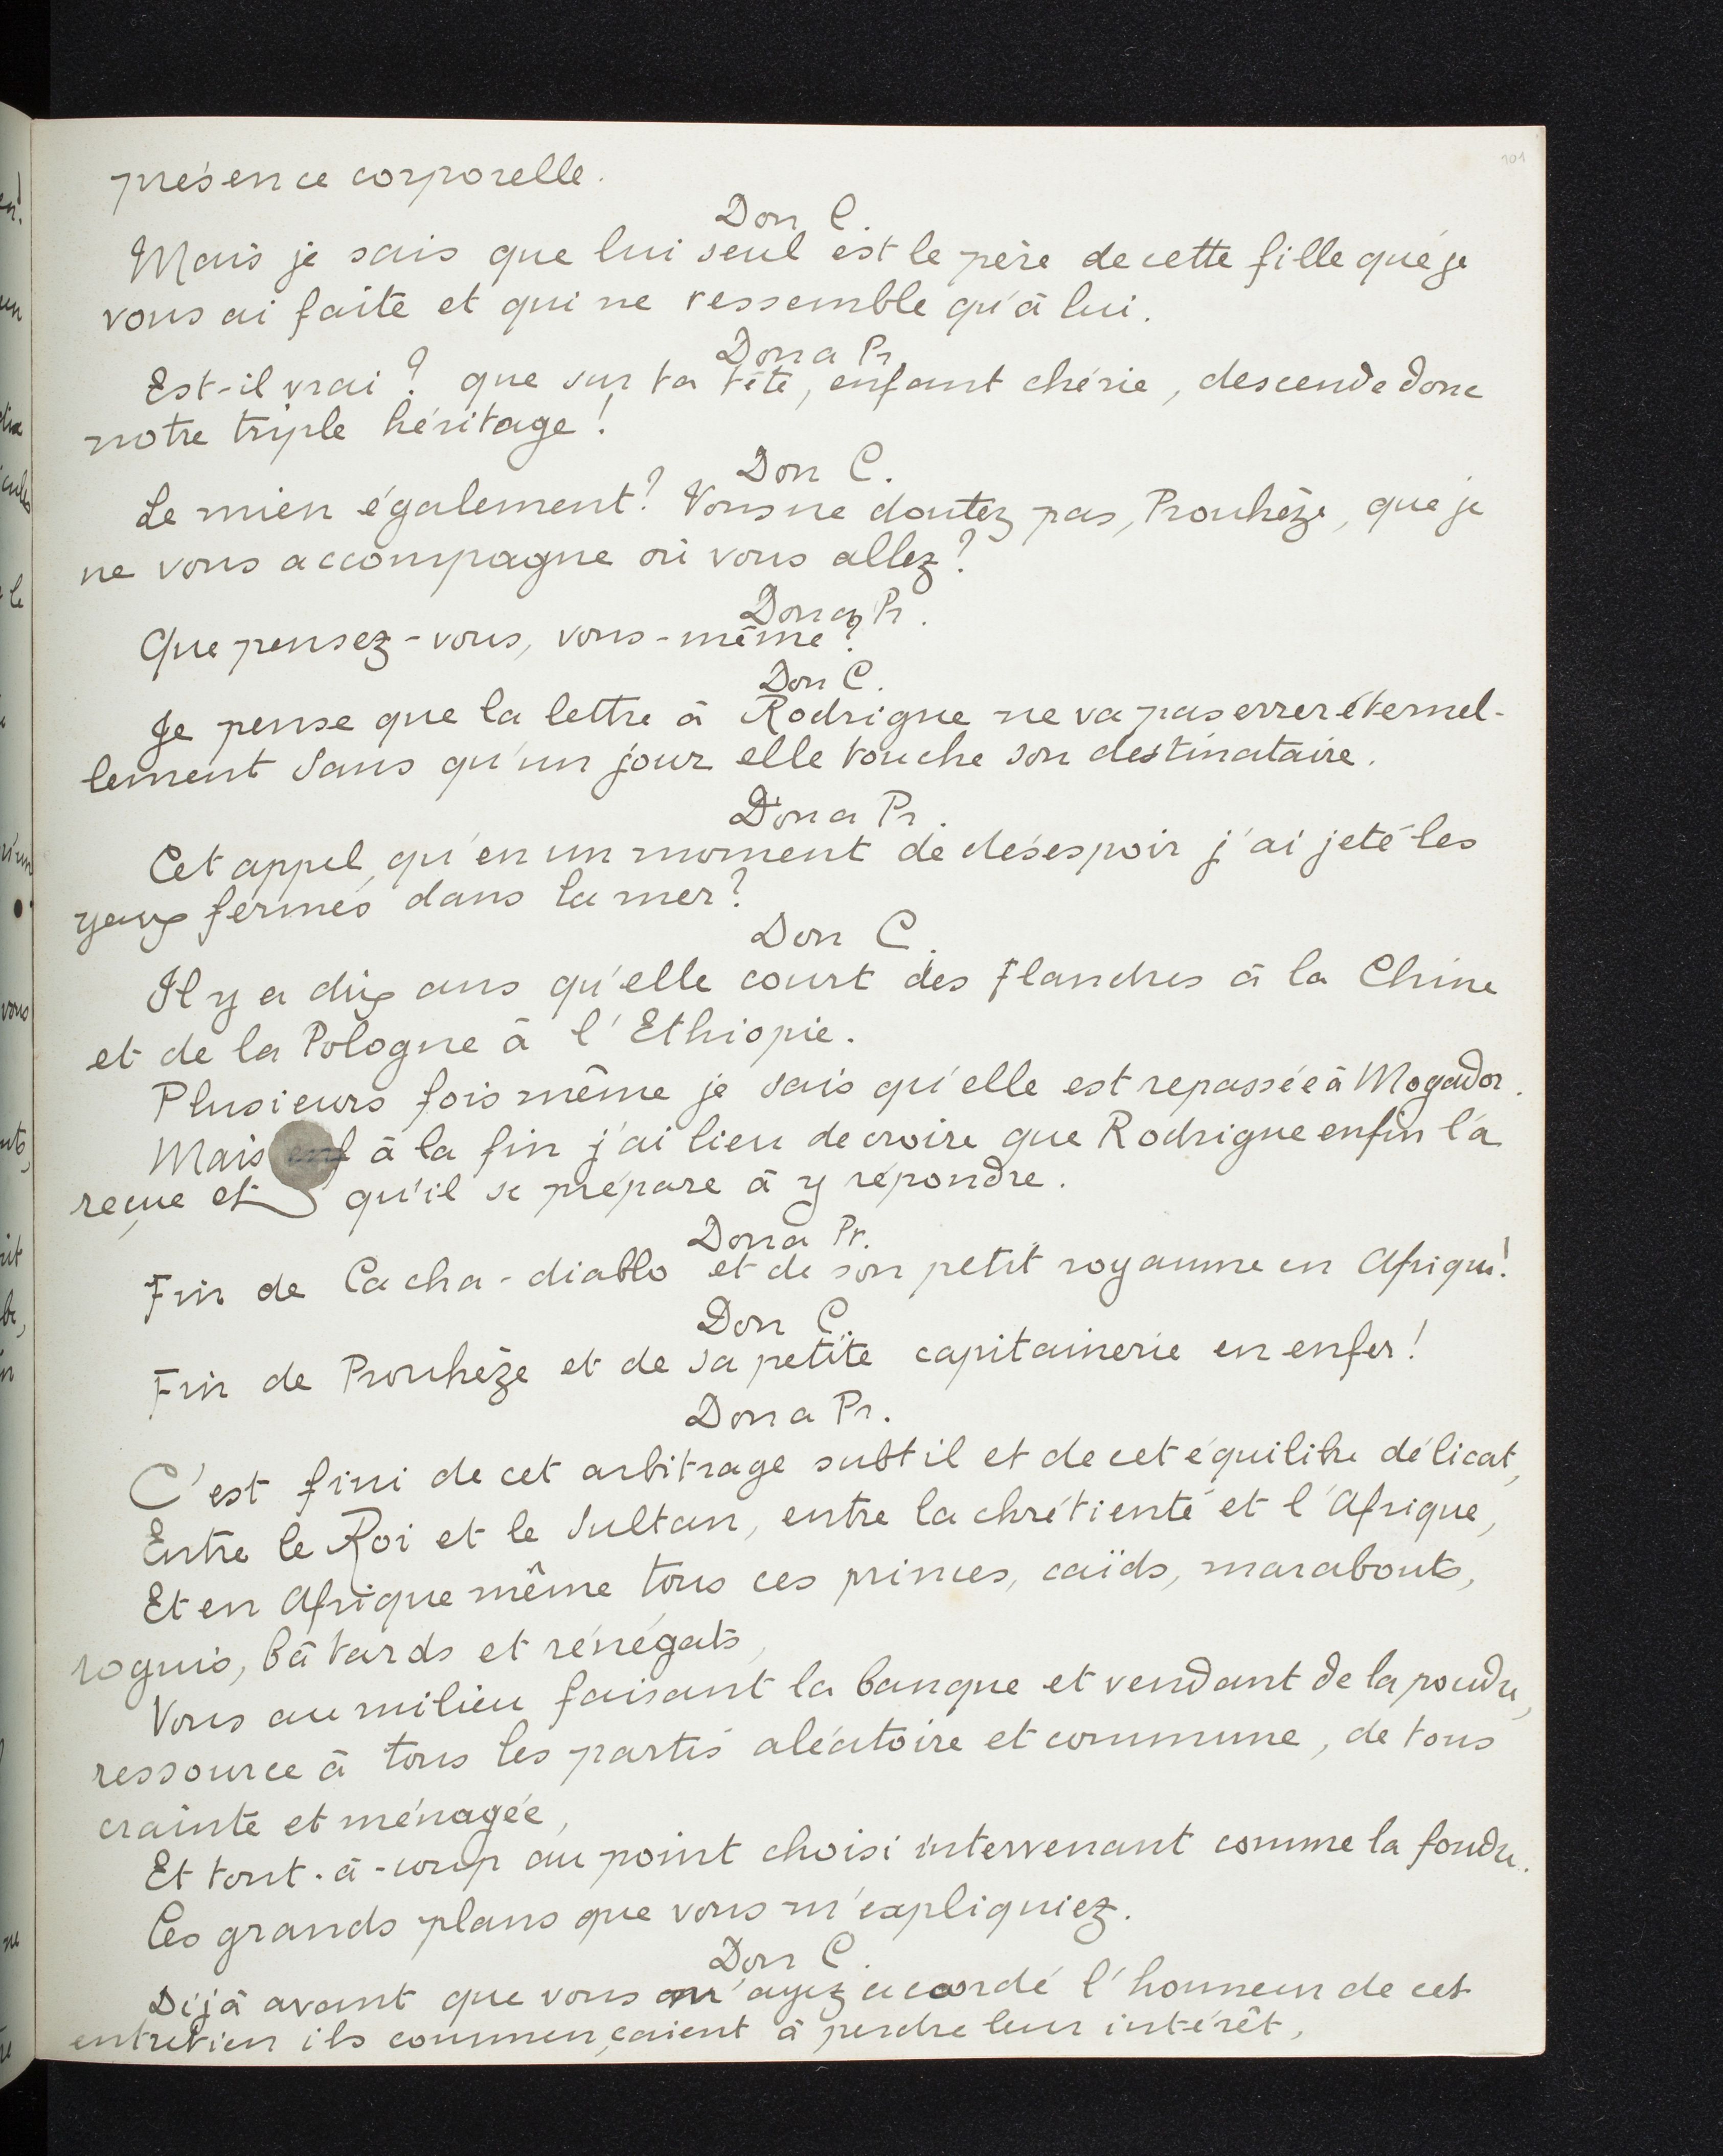 101
présence corporelle.
Don C.
Mais je sais que lui seul est le père de cette fille que je
vous ai faite et qui ne ressemble qu'à lui.
Dona Pr.
Est-il vrai ? que sur ta tête, enfant chérie, descende donc
notre triple héritage !
Don C.
Le mien également ? Vous ne doutez pas, Prouhèze, que je
ne vous accompagne où vous allez ?
Dona Pr.
Que pensez-vous, vous-même ?
Don C.
Je pense que la lettre à Rodrigue ne va pas errer éternel-
lement sans qu'un jour elle touche son destinataire.
Dona Pr.
Cet appel, qu'en un moment de désespoir j'ai jeté les
yeux fermés dans la mer ?
Don C.
Il y a dix ans qu'elle court des Flandres à la Chine
et de la Pologne à l'Ethiopie.
Plusieurs fois même je sais qu'elle est repassée à Mogador.
Mais enf à la fin j'ai lieu de croire que Rodrigue enfin l'a
reçue et qu'il se prépare à y répondre.
Dona Pr.
Fin de Cacha-diablo et de son petit royaume en Afrique !
Don C.
Fin de Prouhèze et de sa petite capitainerie en enfer !
Dona Pr.
C'est fini de cet arbitrage subtil et de cet équilibre délicat,
Entre le Roi et le Sultan, entre la chrétienté et l'Afrique,
Et en Afrique même tous ces princes, caïds, marabouts,
roguis, bâtards et rénégats,
Vous au milieu faisant la banque et vendant de la poudre,
ressource à tous les partis aléatoire et commune, de tous
crainte et ménagée,
Et tout-à-coup au point choisi intervenant comme la foudre.
Ces grands plans que vous m'expliquiez.
Don C.
Déjà avant que vous m'ayez accordé l'honneur de cet
entretien ils commençaient à perdre leur intérêt,